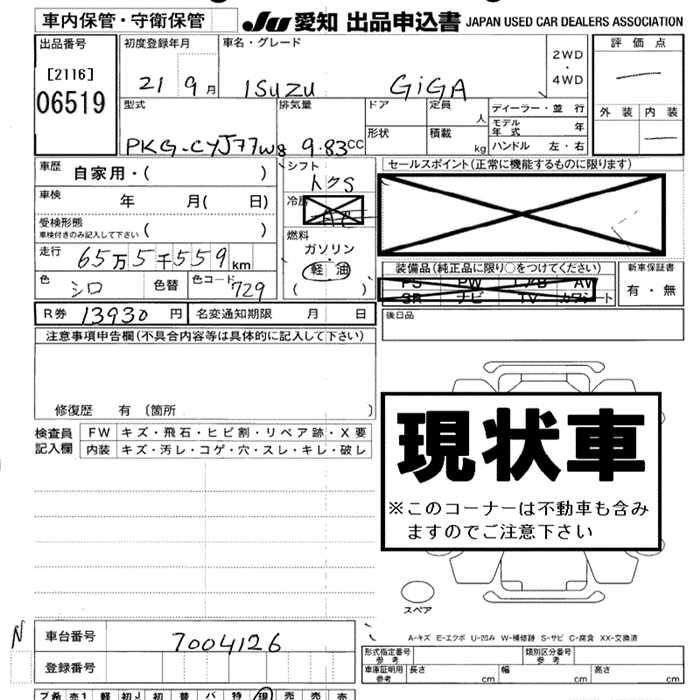 車内保管・守衛保管
JU 愛知 出品申込書 JAPAN USED CAR DEALERS ASSOCIATION
出品番号
[2116]
06519
初度登録年月
21 9月
車名・グレード
ISUZU GiGA
2WD
・
4WD
評価点
外装 内装
型式
PKG-CYJ77W8
排気量
9.83CC
ドア
形状
定員 人
積載 kg
ディーラー・並行
モデル年式 年
ハンドル 左・右
車歴 自家用・( )
車検 年 月( 日)
受検形態
車検付きのみ記入して下さい ( )
走行 65万5千559km
色 シロ 色替 色コード 729
シフト
冷房
AC
燃料
ガソリン・
軽油
( )
セールスポイント(正常に機能するものに限ります)
装備品(純正品に限り○をつけてください)
PS PW エアB AW
SR ナビ TV カワシート
新車保証書
有・無
後日品
R券 13930円 名変通知期限 月 日
注意事項申告欄(不具合内容等は具体的に記入して下さい)
修復歴 有 〔箇所 〕
検査員
記入欄
FW キズ・飛石・ヒビ割・リペア跡・X要
内装 キズ・汚レ・コゲ・穴・スレ・キレ・破レ
現状車
※このコーナーは不動車も含み
ますのでご注意下さい
スペア
A-キズ E-エクボ U-凹み W-補修跡 S-サビ C-腐食 XX-交換済
N
車台番号 7004126
登録番号
形式指定番号
参考
類別区分番号
参考
車庫証明用
参考
長さ cm 幅 cm 高さ cm